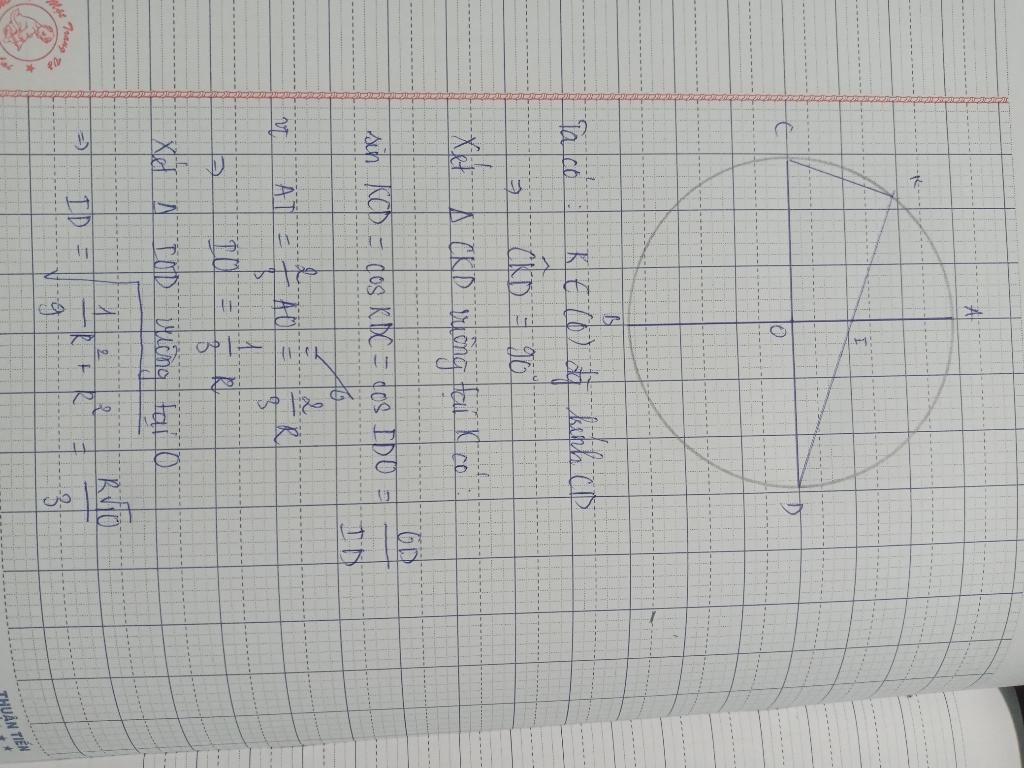 A
K
I
C
O
D
B
Ta có : K ∈ (O) đg kính CD
⇒ ĈKD = 90°
Xét Δ CKD vuông tại K có :
sin KCD = cos KDC = cos IDO = OD / ID
vì AI = 2/3 AO = 2/3 R
⇒ IO = 1/3 R
Xét Δ IOD vuông tại O
⇒ ID = √(1/9 R² + R²) = R√10 / 3
THUẬN TIẾN